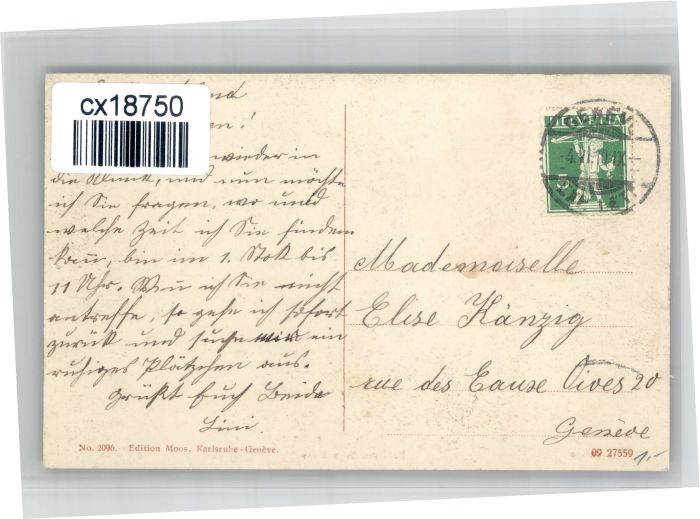 cx18750
wieder in
und nun möchte
ich Sie fragen, wo und
welche Zeit ich Sie finden
kann, bin im 1. Stok bis
11 Uhr. Wenn ich Sie nicht
antreffe, so gehe ich sofort
zurück und suche mir ein
ruhiges Plätzchen aus.
Grüßt Euch Beide
Lini.
Mademoiselle
Elise Känzig
rue des Eaux Vives 20
Genève
No. 2096. Edition Moos, Karlsruhe-Genève.
09 27559
1.-